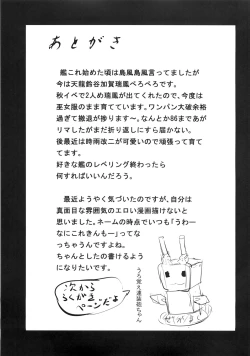 あとがき
艦これ始めた頃は島風島風言ってましたが
今は天龍鈴谷加賀瑞鳳ぺろぺろです。
秋イベで2人め瑞鳳が出てくれたので、今度は
巫女服のまま育てています。ワンパン大破余裕
過ぎて撤退が捗りますー。なんとか86まであが
リマしたがまだ折り返しすら届かない。
後最近は時雨改二が可愛いので頑張って育て
てます。
好きな艦のレベリング終わったら
何すればいいんだろう。
最近ようやく気づいたのですが、自分は
真面目な雰囲気のエロい漫画描けないと
思いました。ネームの時点でいつも「うわー
なにこれきんもー」ってな
っちゃうんですよね。
ちゃんとしたの書けるよう
になりたいです。
うろ覚え連装砲ちゃん
次から
らくがき
ページだよ